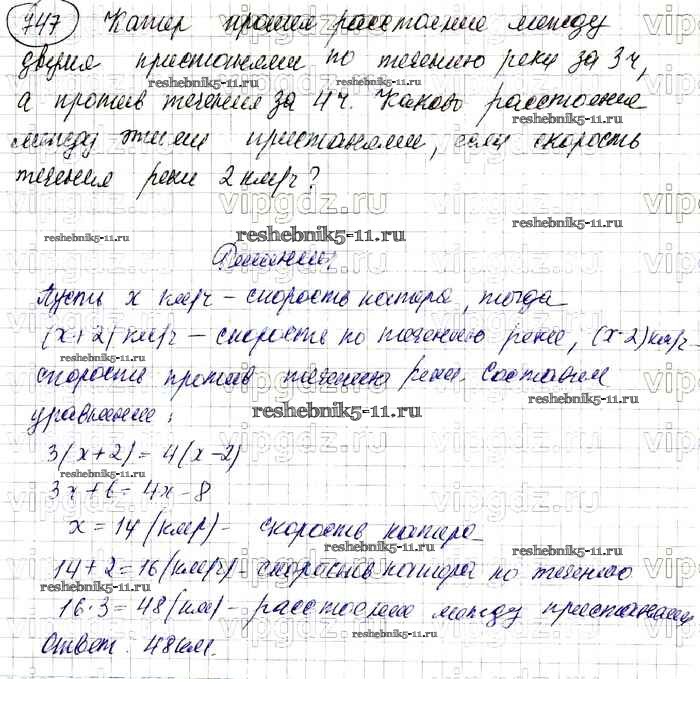 747 Катер прошел расстояние между
двумя пристанями по течению реки за 3ч,
а против течения за 4ч. Каково расстояние
между этими пристанями, если скорость
течения реки 2 км/ч?
Решение:
Пусть x км/ч – скорость катера, тогда
(x+2) км/ч – скорость по течению реки, (x-2) км/ч –
скорость против течению реки. Составим
уравнение:
3(x+2)=4(x-2)
3x+6=4x-8
x=14 (км/ч) – скорость катера
14+2=16 (км/ч) – скорость катера по течению
16·3=48 (км) – расстояние между пристанями
Ответ: 48км.
vipgdz.ru
reshebnik5-11.ru